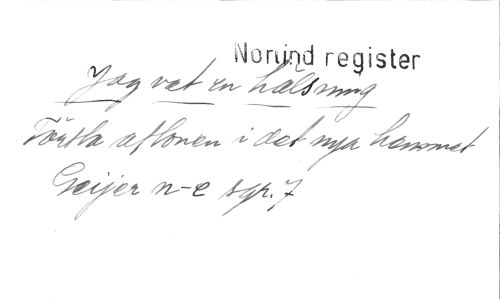 Norlind register
Jag vet en hälsning
Första aftonen i det nya hemmet
Geijer n-e sgr. 7